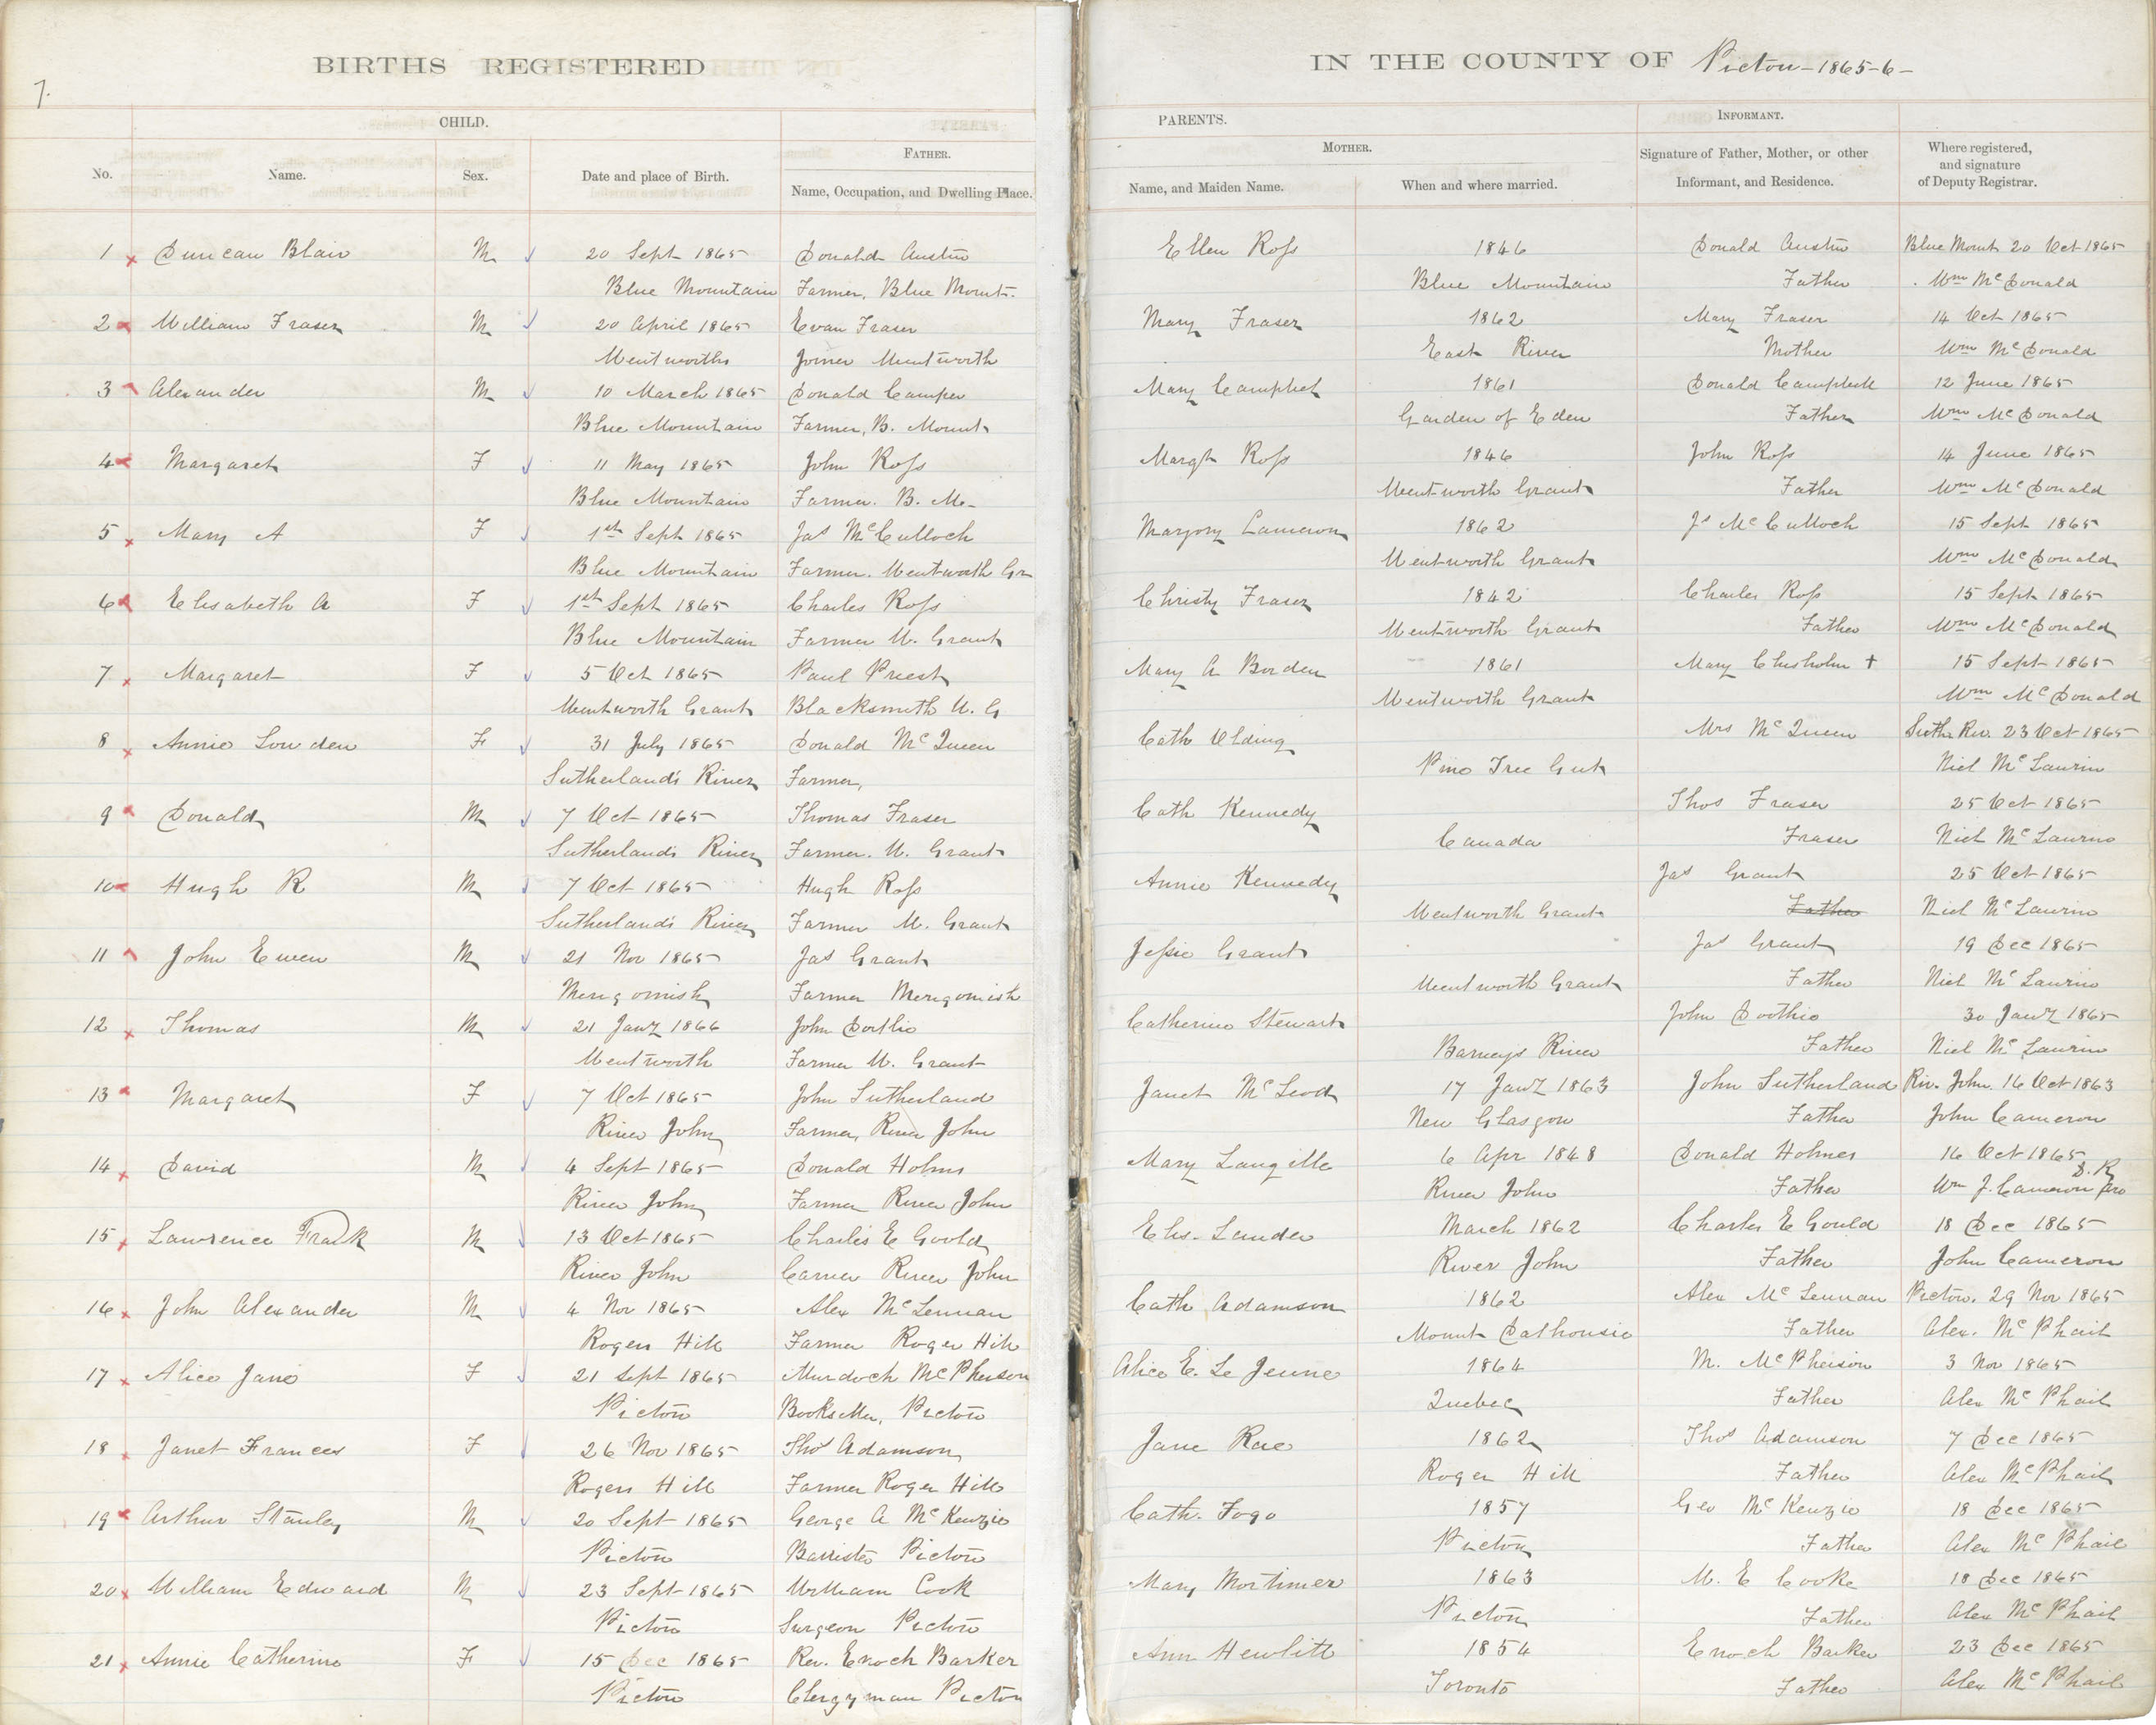 BIRTHS REGISTERED IN THE COUNTY OF Picton - 1865-6 -
7.
CHILD. PARENTS. INFORMANT.
FATHER. MOTHER.
No. Name. Sex. Date and place of Birth. Name, Occupation, and Dwelling Place. Name, and Maiden Name. When and where married. Signature of Father, Mother, or other Informant, and Residence. Where registered, and signature of Deputy Registrar.
1 Duncan Blair M 20 Sept 1865 Donald Austin Ellen Ross 1846 Donald Austin Blue Mount 20 Oct 1865
Blue Mountain Farmer, Blue Mount. Blue Mountain Father Wm McDonald
2 William Fraser M 20 April 1865 Evan Fraser Mary Fraser 1862 Mary Fraser 14 Oct 1865
Wentworths Joiner Wentworth East River Mother Wm McDonald
3 Alexander M 10 March 1865 Donald Mary Campbel 1861 Donald Campbell 12 June 1865
Blue Mountain Farmer, B. Mount Garden of Eden Father Wm McDonald
4 Margaret F 11 May 1865 John Ross Margt Ross 1846 John Ross 14 June 1865
Blue Mountain Farmer. B. M. Wentworth Grant Father Wm McDonald
5 Mary A F 1st Sept 1865 Jas McCulloch Marjory Cameron 1862 Js McCulloch 15 Sept 1865
Blue Mountain Farmer. Wentworth Gr Wentworth Grant Wm McDonald
6 Elisabeth A F 1st Sept 1865 Charles Ross Christy Fraser 1842 Charles Ross 15 Sept 1865
Blue Mountain Farmer W. Grant Wentworth Grant Father Wm McDonald
7 Margaret F 5 Oct 1865 Paul Priest Mary A Borden 1861 Mary Chisholm + 15 Sept 1865
Wentworth Grant Blacksmith W. G Wentworth Grant Wm McDonald
8 Annie Lowden F 31 July 1865 Donald McQueen Cath Olding Mrs McQueen Suthr Riv. 23 Oct 1865
Sutherland's River Farmer, Pine Tree Gut Niel McLaurin
9 Donald M 7 Oct 1865 Thomas Fraser Cath Kennedy Thos Fraser 25 Oct 1865
Sutherlands River Farmer. W. Grant Canada Fraser Niel McLaurin
10 Hugh R M 7 Oct 1865 Hugh Ross Annie Kennedy Jas Grant 25 Oct 1865
Sutherlands River Farmer W. Grant Wentworth Grant Father Niel McLaurin
11 John Ewen M 21 Nov 1865 Jas Grant Jessie Grant Jas Grant 19 Dec 1865
Merigomish Farmer Merigomish Wentworth Grant Father Niel McLaurin
12 Thomas M 21 Jany 1866 John Catherine Stewart John Doothie 30 Jany 1865
Wentworth Farmer W. Grant Barneys River Father Niel McLaurin
13 Margaret F 7 Oct 1865 John Sutherland Janet McLeod 17 Jany 1863 John Sutherland Riv. John. 16 Oct 1863
River John Farmer, River John New Glasgow Father John Cameron
14 David M 4 Sept 1865 Donald Holms Mary Langille 6 Apr 1848 Donald Holmes 16 Oct 1865
River John Farmer River John River John Father Wm J. Cameron pro D. R
15 Lawrence Frank M 13 Oct 1865 Charles E Goold Elis. Lander March 1862 Charles E Gould 18 Dec 1865
River John Carrier River John River John Father John Cameron
16 John Alexander M 4 Nov 1865 Alex McLennan Cath Adamson 1862 Alex McLennan Picton. 29 Nov 1865
Rogers Hill Farmer Roger Hill Mount Dalhousie Father Alex. McPhail
17 Alice Jane F 21 Sept 1865 Murdoch McPherson Alice E. Le Jeune 1864 M. McPherson 3 Nov 1865
Picton Bookseller, Picton Quebec Father Alex McPhail
18 Janet Frances F 26 Nov 1865 Thos Adamson Jane Rae 1862 Thos Adamson 7 Dec 1865
Rogers Hill Farmer Roger Hill Roger Hill Father Alex McPhail
19 Arthur Stanley M 20 Sept 1865 George A McKenzie Cath. Fogo 1857 Geo McKenzie 18 Dec 1865
Picton Barrister Picton Picton Father Alex McPhail
20 William Edward M 23 Sept 1865 William Cook Mary Mortimer 1863 W. E Cooke 18 Dec 1865
Picton Surgeon Picton Picton Father Alex McPhail
21 Annie Catherine F 15 Dec 1865 Rev. Enoch Barker Ann Hewlitt 1854 Enoch Barker 23 Dec 1865
Picton Clergyman Picton Toronto Father Alex McPhail